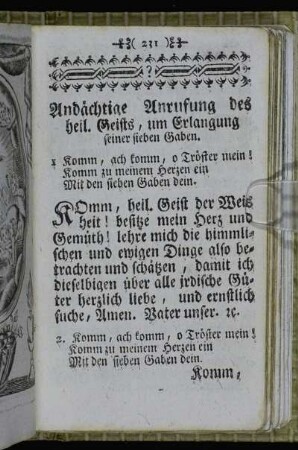 ( 231 )
Andächtige Anrufung des
heil. Geists, um Erlangung
seiner sieben Gaben.
1 Komm, ach komm, o Tröster mein!
Komm zu meinem Herzen ein
Mit den sieben Gaben dein.
KOmm, heil. Geist der Weis
heit! besitze mein Herz und
Gemüth! lehre mich die himmli-
schen und ewigen Dinge also be-
trachten und schätzen, damit ich
dieselbigen über alle irdische Gü-
ter herzlich liebe, und ernstlich
suche, Amen. Vater unser. ꝛc.
2. Komm, ach komm, o Tröster mein!
Komm zu meinem Herzen ein
Mit den sieben Gaben dein.
Komm,